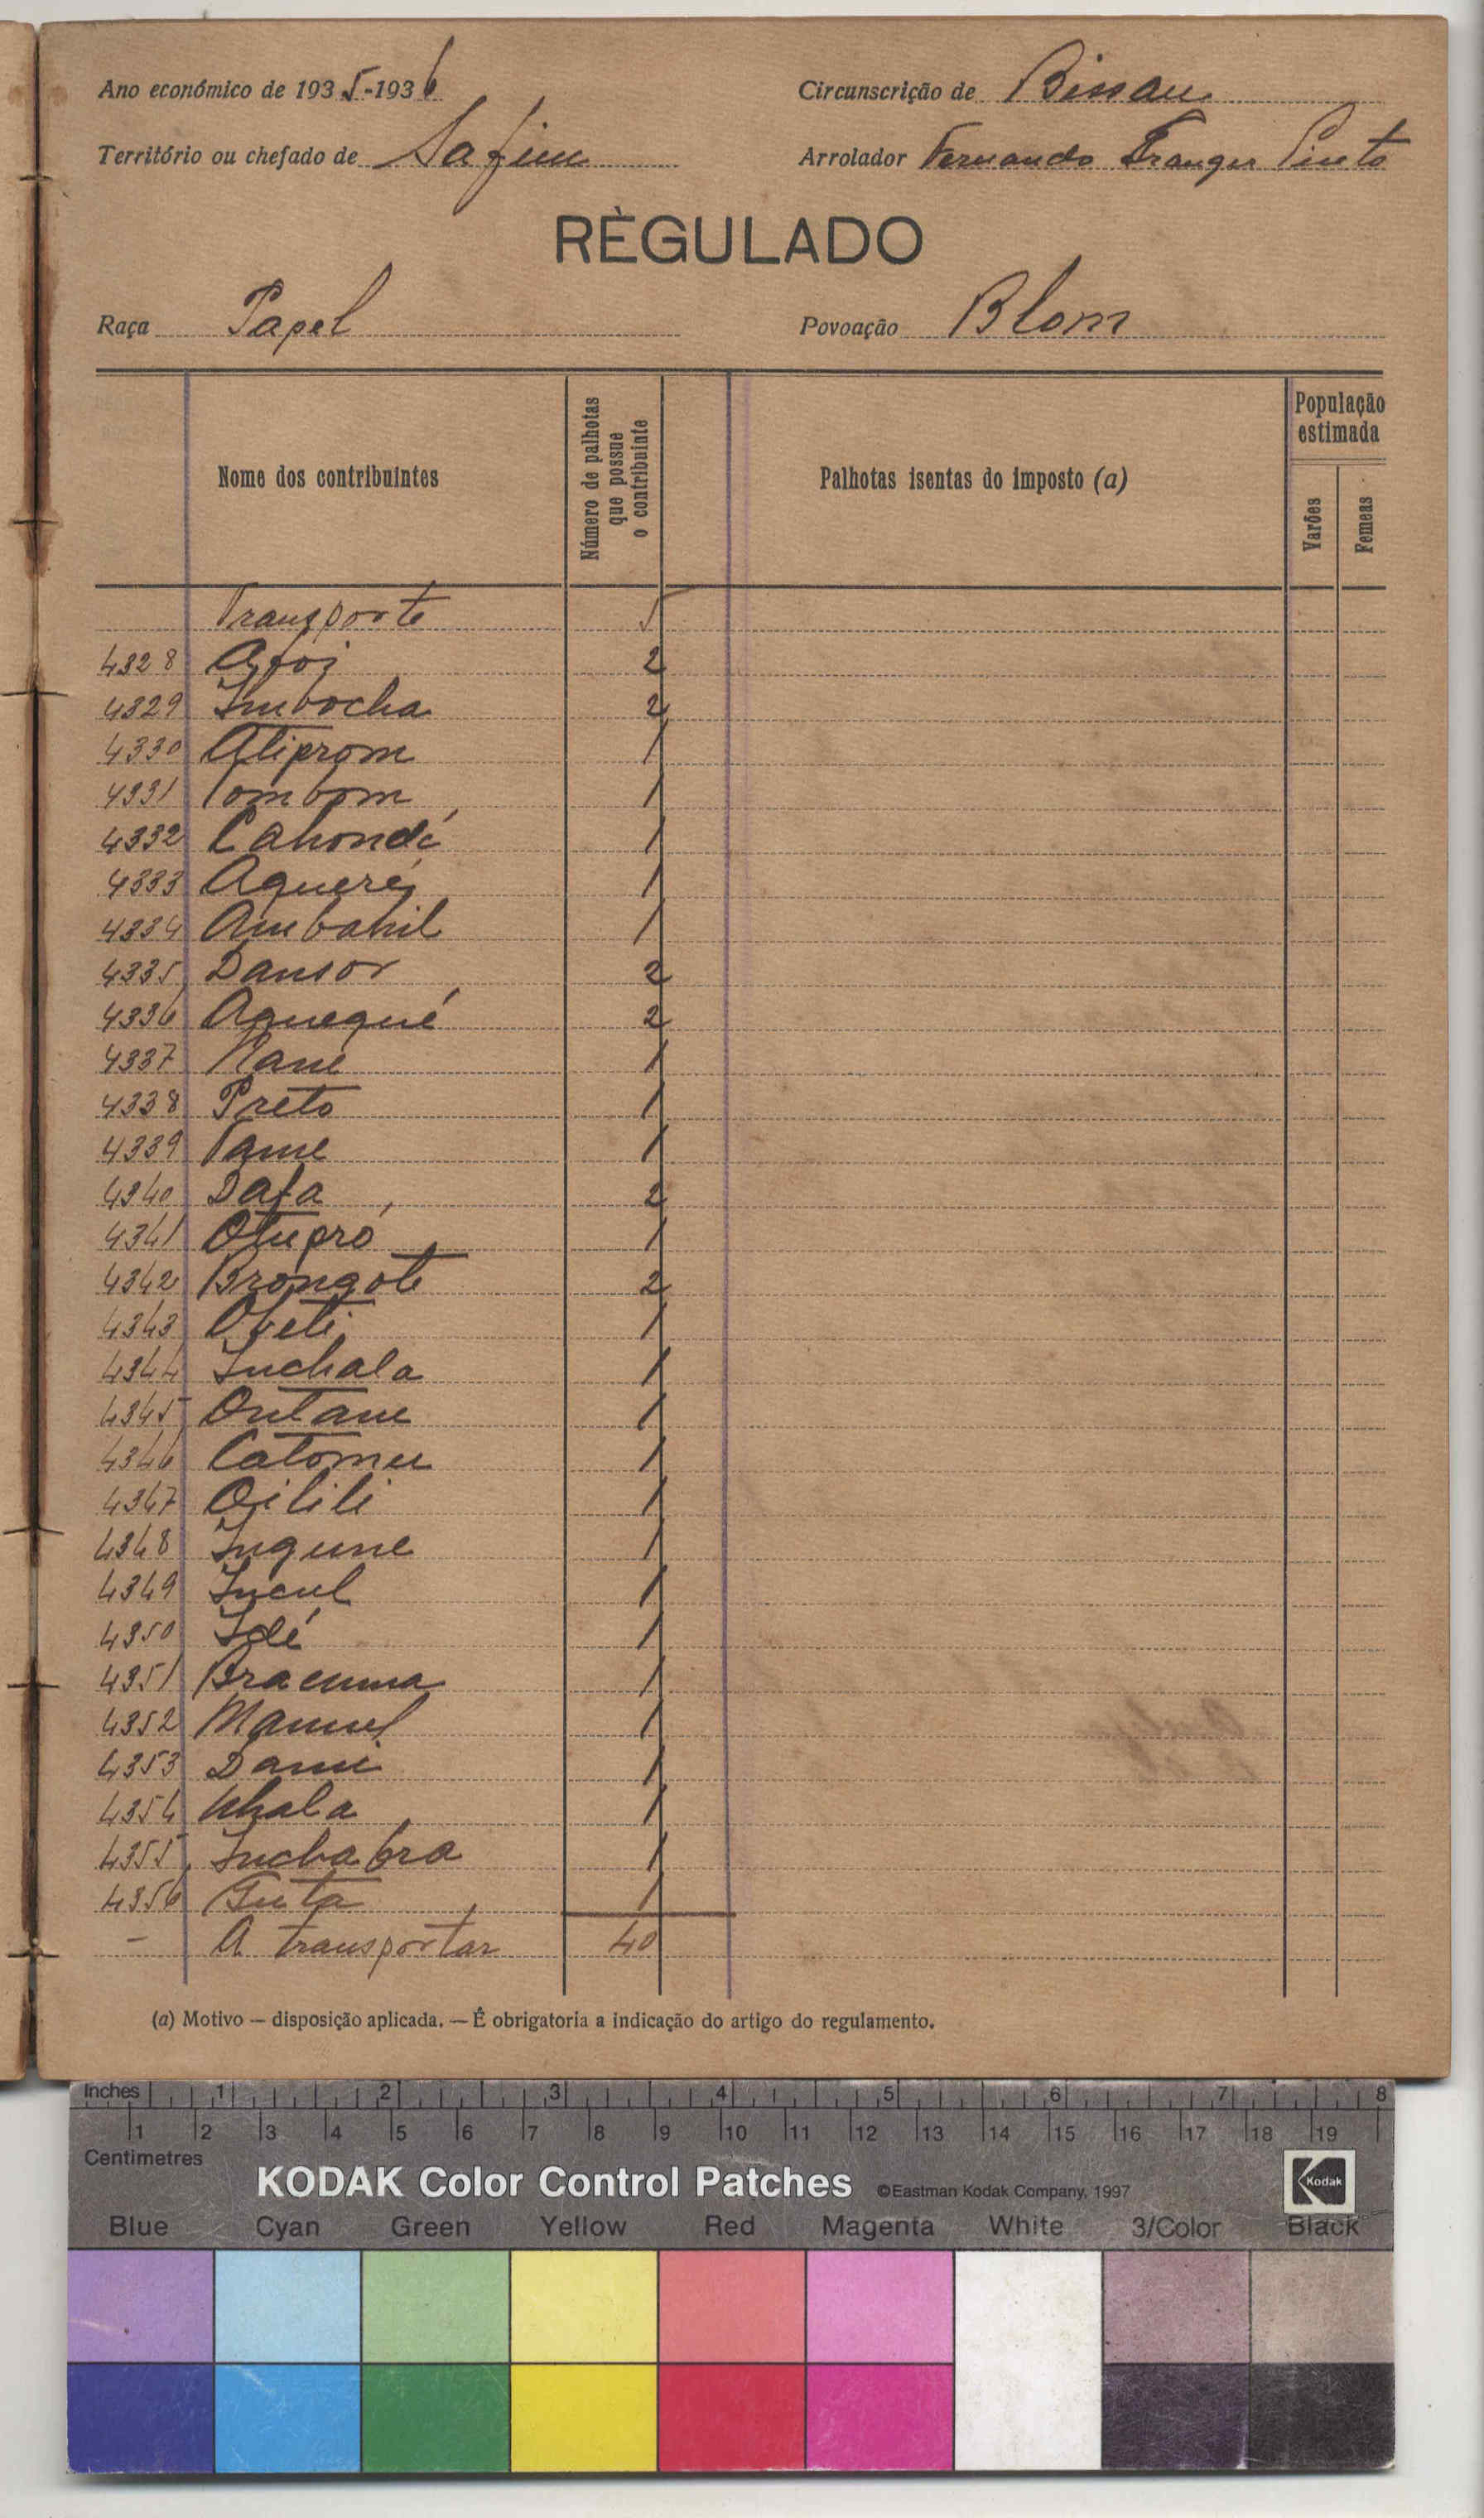 Ano económico de 1935-1936
Circunscrição de Bissau
Território ou chefado de Safim
Arrolador Fernando Pinto
RÈGULADO
Raça Papel
Povoação Blom
Nome dos contribuintes
Número de palhotas que possue o contribuinte
Palhotas isentas do imposto (a)
População estimada
Varões
Femeas
Transporte 5
4328 2
4329 Imbocha 2
4330 Atiprom 1
4331 Tombom 1
4332 Cahondé 1
4333 Agueré 1
4334 Ambahil 1
4335 Dansor 2
4336 Anequé 2
4337 Nane 1
4338 Preto 1
4339 Tame 1
4340 Dafa 2
4341 1
4342 Brongote 2
4343 1
4344 Inchala 1
4345 Ontane 1
4346 Catomeu 1
4347 Oilili 1
4348 Ingune 1
4349 Incul 1
4350 Idé 1
4351 Braema 1
4352 Manuel 1
4353 Dami 1
4354 Uhala 1
4355 Inchabra 1
4356 1
- A transportar 40
(a) Motivo — disposição aplicada. — É obrigatoria a indicação do artigo do regulamento.
Inches 1 2 3 4 5 6 7 8
1 2 3 4 5 6 7 8 9 10 11 12 13 14 15 16 17 18 19
Centimetres
KODAK Color Control Patches ©Eastman Kodak Company, 1997 Kodak
Blue Cyan Green Yellow Red Magenta White 3/Color Black